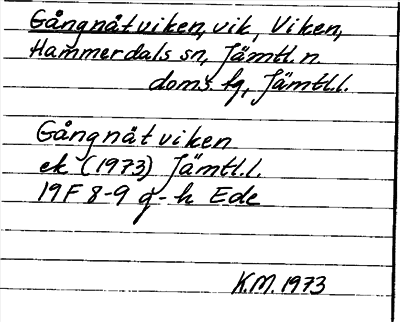 Gångnåtviken, vik, Viken,
Hammerdals sn, Jämtl. n.
doms. fg, Jämtl.l.
Gångnåtviken
ek (1973) Jämtl.l.
19F 8-9 g-h Ede
K.M. 1973